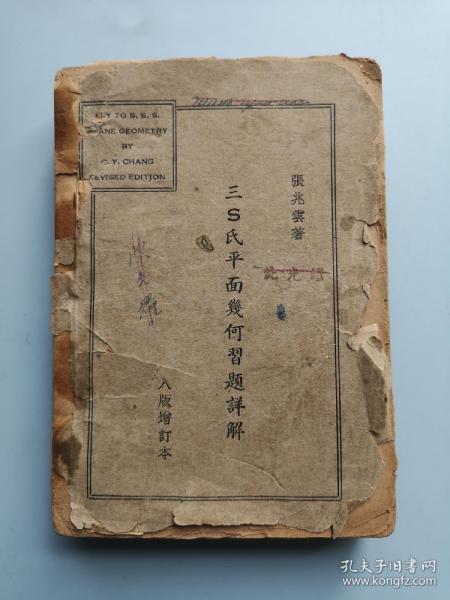 KEY TO S. S. S.
ANE GEOMETRY
BY
C. Y. CHANG
REVISED EDITION
張兆雲著
三S氏平面幾何習題詳解
八版增訂本
孔夫子旧书网
www.kongfz.com